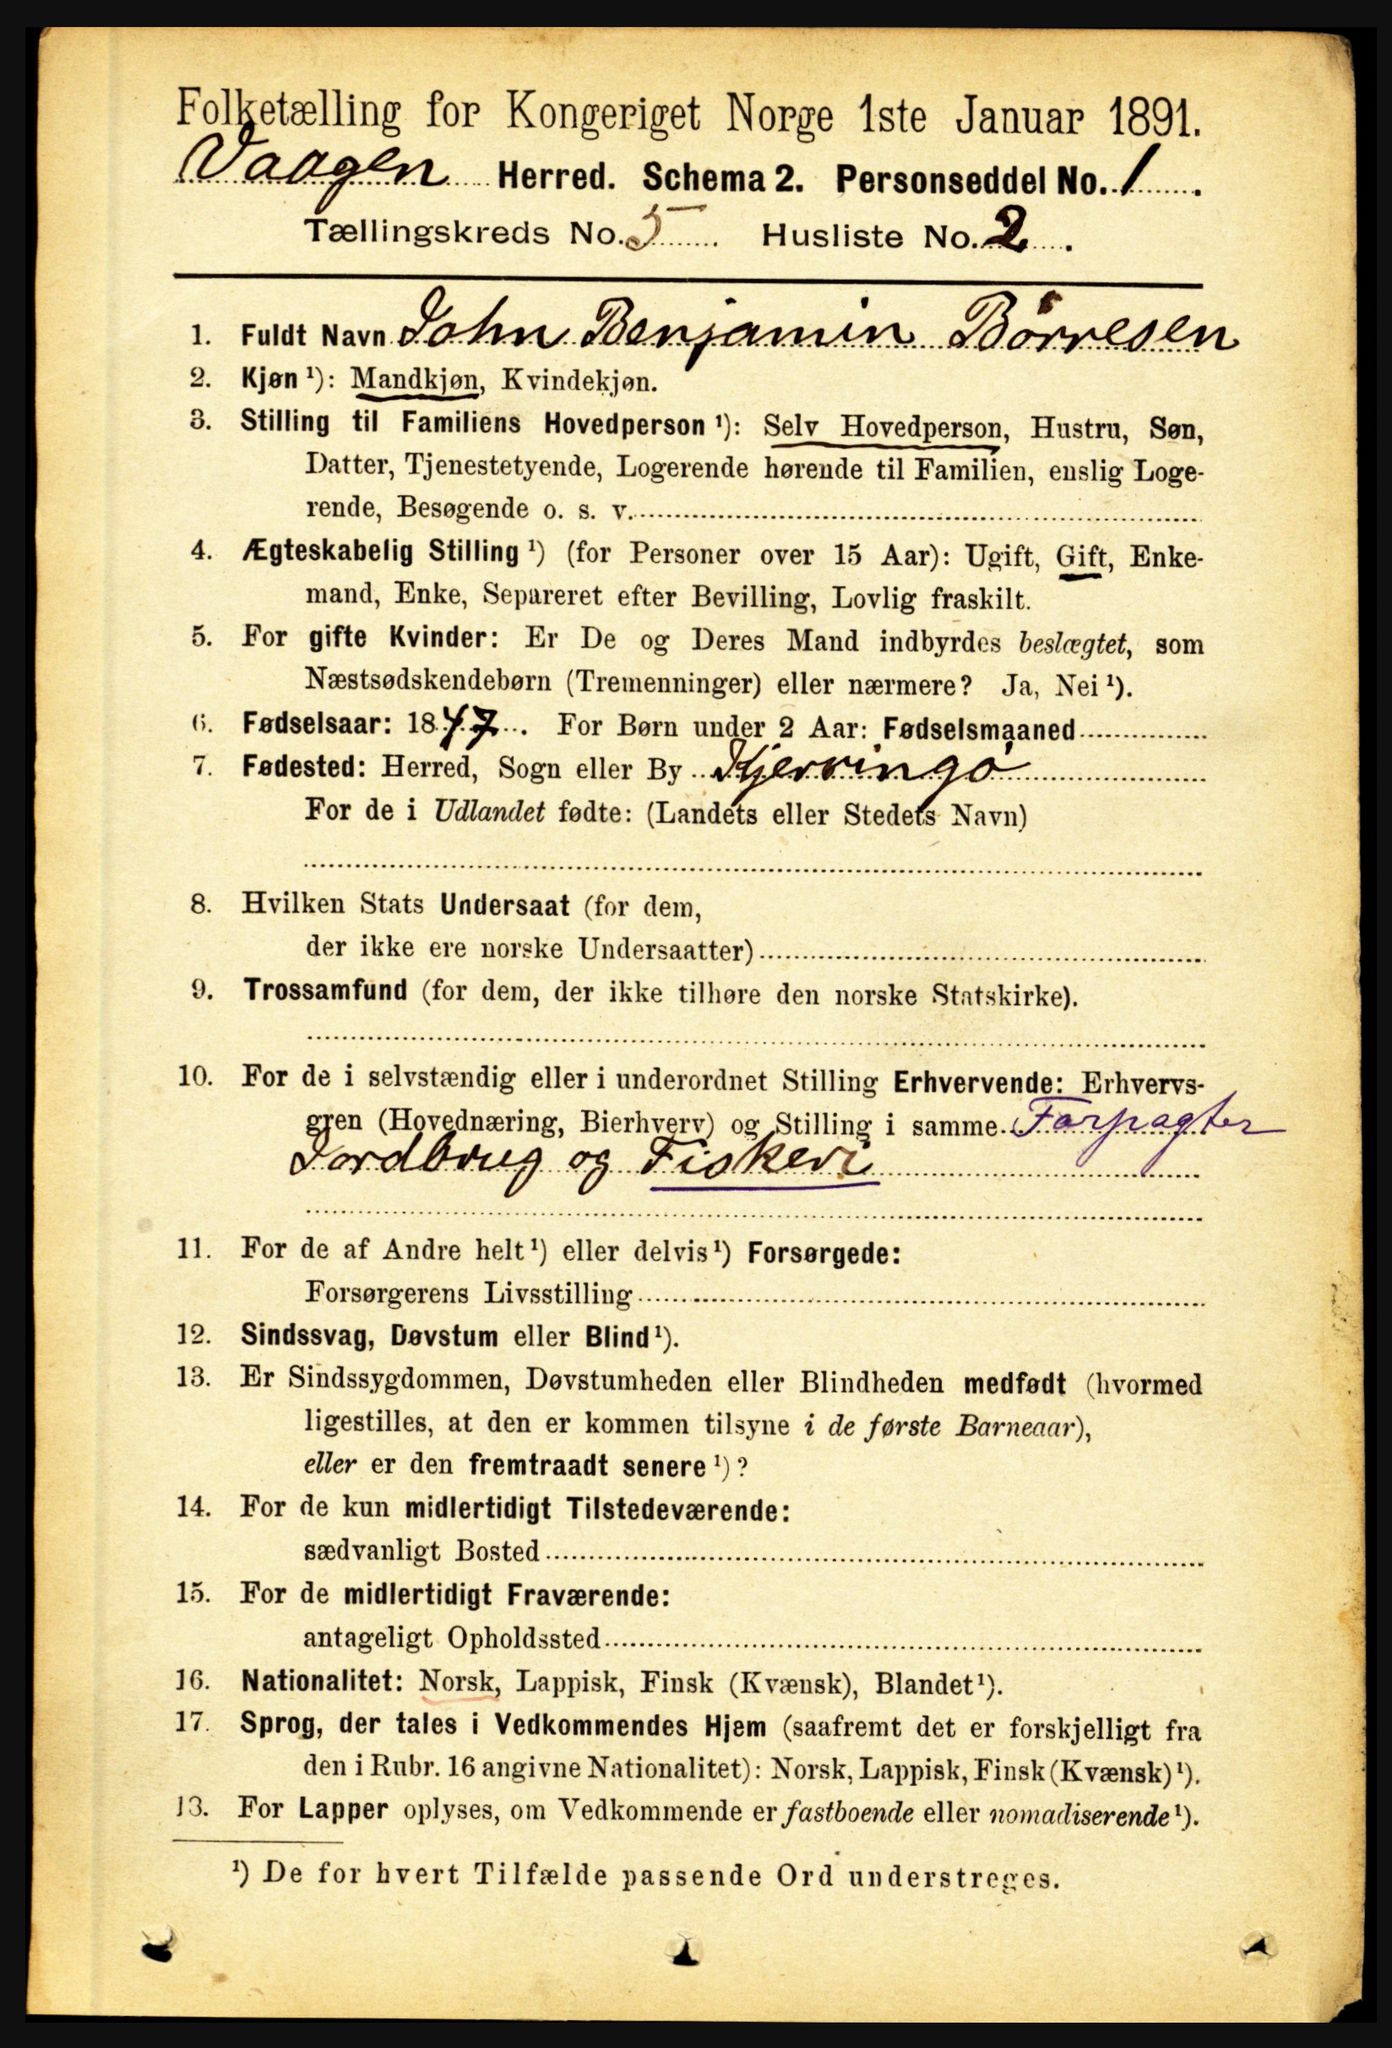 Folketælling for Kongeriget Norge 1ste Januar 1891.
Vaagen Herred. Schema 2. Personseddel No. 1.
Tællingskreds No. 5. Husliste No. 2.
1. Fuldt Navn John Benjamin Börresen
2. Kjøn ¹): Mandkjøn, Kvindekjøn.
3. Stilling til Familiens Hovedperson ¹): Selv Hovedperson, Hustru, Søn,
Datter, Tjenestetyende, Logerende hørende til Familien, enslig Loge-
rende, Besøgende o. s. v.
4. Ægteskabelig Stilling ¹) (for Personer over 15 Aar): Ugift, Gift, Enke-
mand, Enke, Separeret efter Bevilling, Lovlig fraskilt.
5. For gifte Kvinder: Er De og Deres Mand indbyrdes beslægtet, som
Næstsødskendebørn (Tremenninger) eller nærmere? Ja, Nei ¹).
6. Fødselsaar: 1847. For Børn under 2 Aar: Fødselsmaaned
7. Fødested: Herred, Sogn eller By Kjerringö
For de i Udlandet fødte: (Landets eller Stedets Navn)
8. Hvilken Stats Undersaat (for dem,
der ikke ere norske Undersaatter)
9. Trossamfund (for dem, der ikke tilhøre den norske Statskirke).
10. For de i selvstændig eller i underordnet Stilling Erhvervende: Erhvervs-
gren (Hovednæring, Bierhverv) og Stilling i samme Forpagter
Jordbrug og Fiskeri
11. For de af Andre helt ¹) eller delvis ¹) Forsørgede:
Forsørgerens Livsstilling
12. Sindssvag, Døvstum eller Blind ¹).
13. Er Sindssygdommen, Døvstumheden eller Blindheden medfødt (hvormed
ligestilles, at den er kommen tilsyne i de første Barneaar),
eller er den fremtraadt senere ¹)?
14. For de kun midlertidigt Tilstedeværende:
sædvanligt Bosted
15. For de midlertidigt Fraværende:
antageligt Opholdssted
16. Nationalitet: Norsk, Lappisk, Finsk (Kvænsk), Blandet ¹).
17. Sprog, der tales i Vedkommendes Hjem (saafremt det er forskjelligt fra
den i Rubr. 16 angivne Nationalitet): Norsk, Lappisk, Finsk (Kvænsk) ¹).
18. For Lapper oplyses, om Vedkommende er fastboende eller nomadiserende ¹).
¹) De for hvert Tilfælde passende Ord understreges.